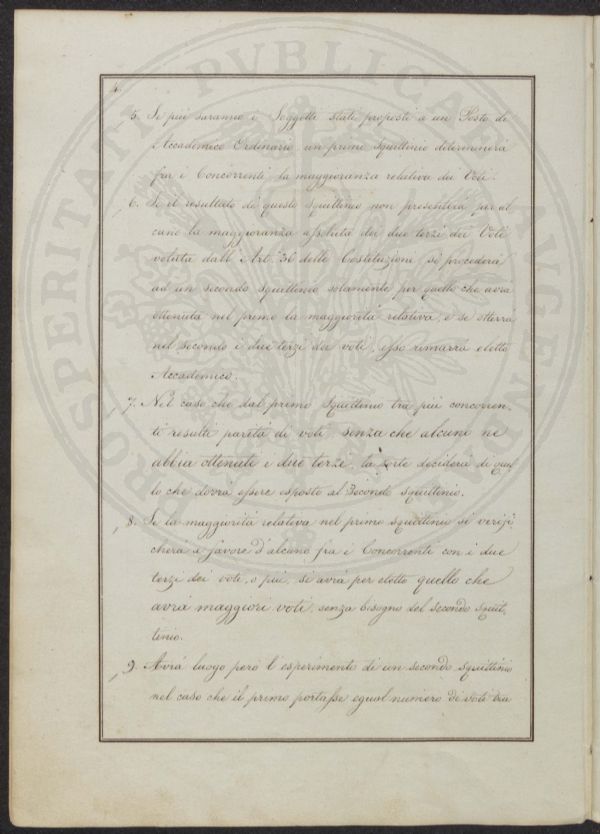 PROSPERITATI PVBLICAE AVGENDAE
4.
5. Se più saranno i Soggetti stati proposti a un Posto di
Accademico Ordinario un primo squittinio determinerà
fra i Concorrenti la maggioranza relativa dei Voti.
6. Se il resultato di questo squittinio non presenterà per al
cuno la maggioranza assoluta dei due terzi dei Voti
voluta dall'Art. 36 delle Costituzioni, si procederà
ad un secondo squittinio solamente per quello che avrà
ottenuta nel primo la maggiorità relativa, e se otterrà
nel secondo i due terzi dei voti, esso rimarrà eletto
Accademico.
7. Nel caso che dal primo squittinio tra più concorren-
ti resulti parità di voti senza che alcuni ne
abbia ottenuti i due terzi, la sorte deciderà di quel
lo che dovrà essere esposto al secondo squittinio.
8. Se la maggiorità relativa nel primo squittinio si verifi
cherà a favore d'alcuno fra i Concorrenti con i due
terzi dei voti, o più, si avrà per eletto quello che
avrà maggiori voti, senza bisogno del secondo squit-
tinio.
9. Avrà luogo però l'esperimento di un secondo squittinio
nel caso che il primo portasse egual numero di voti tra